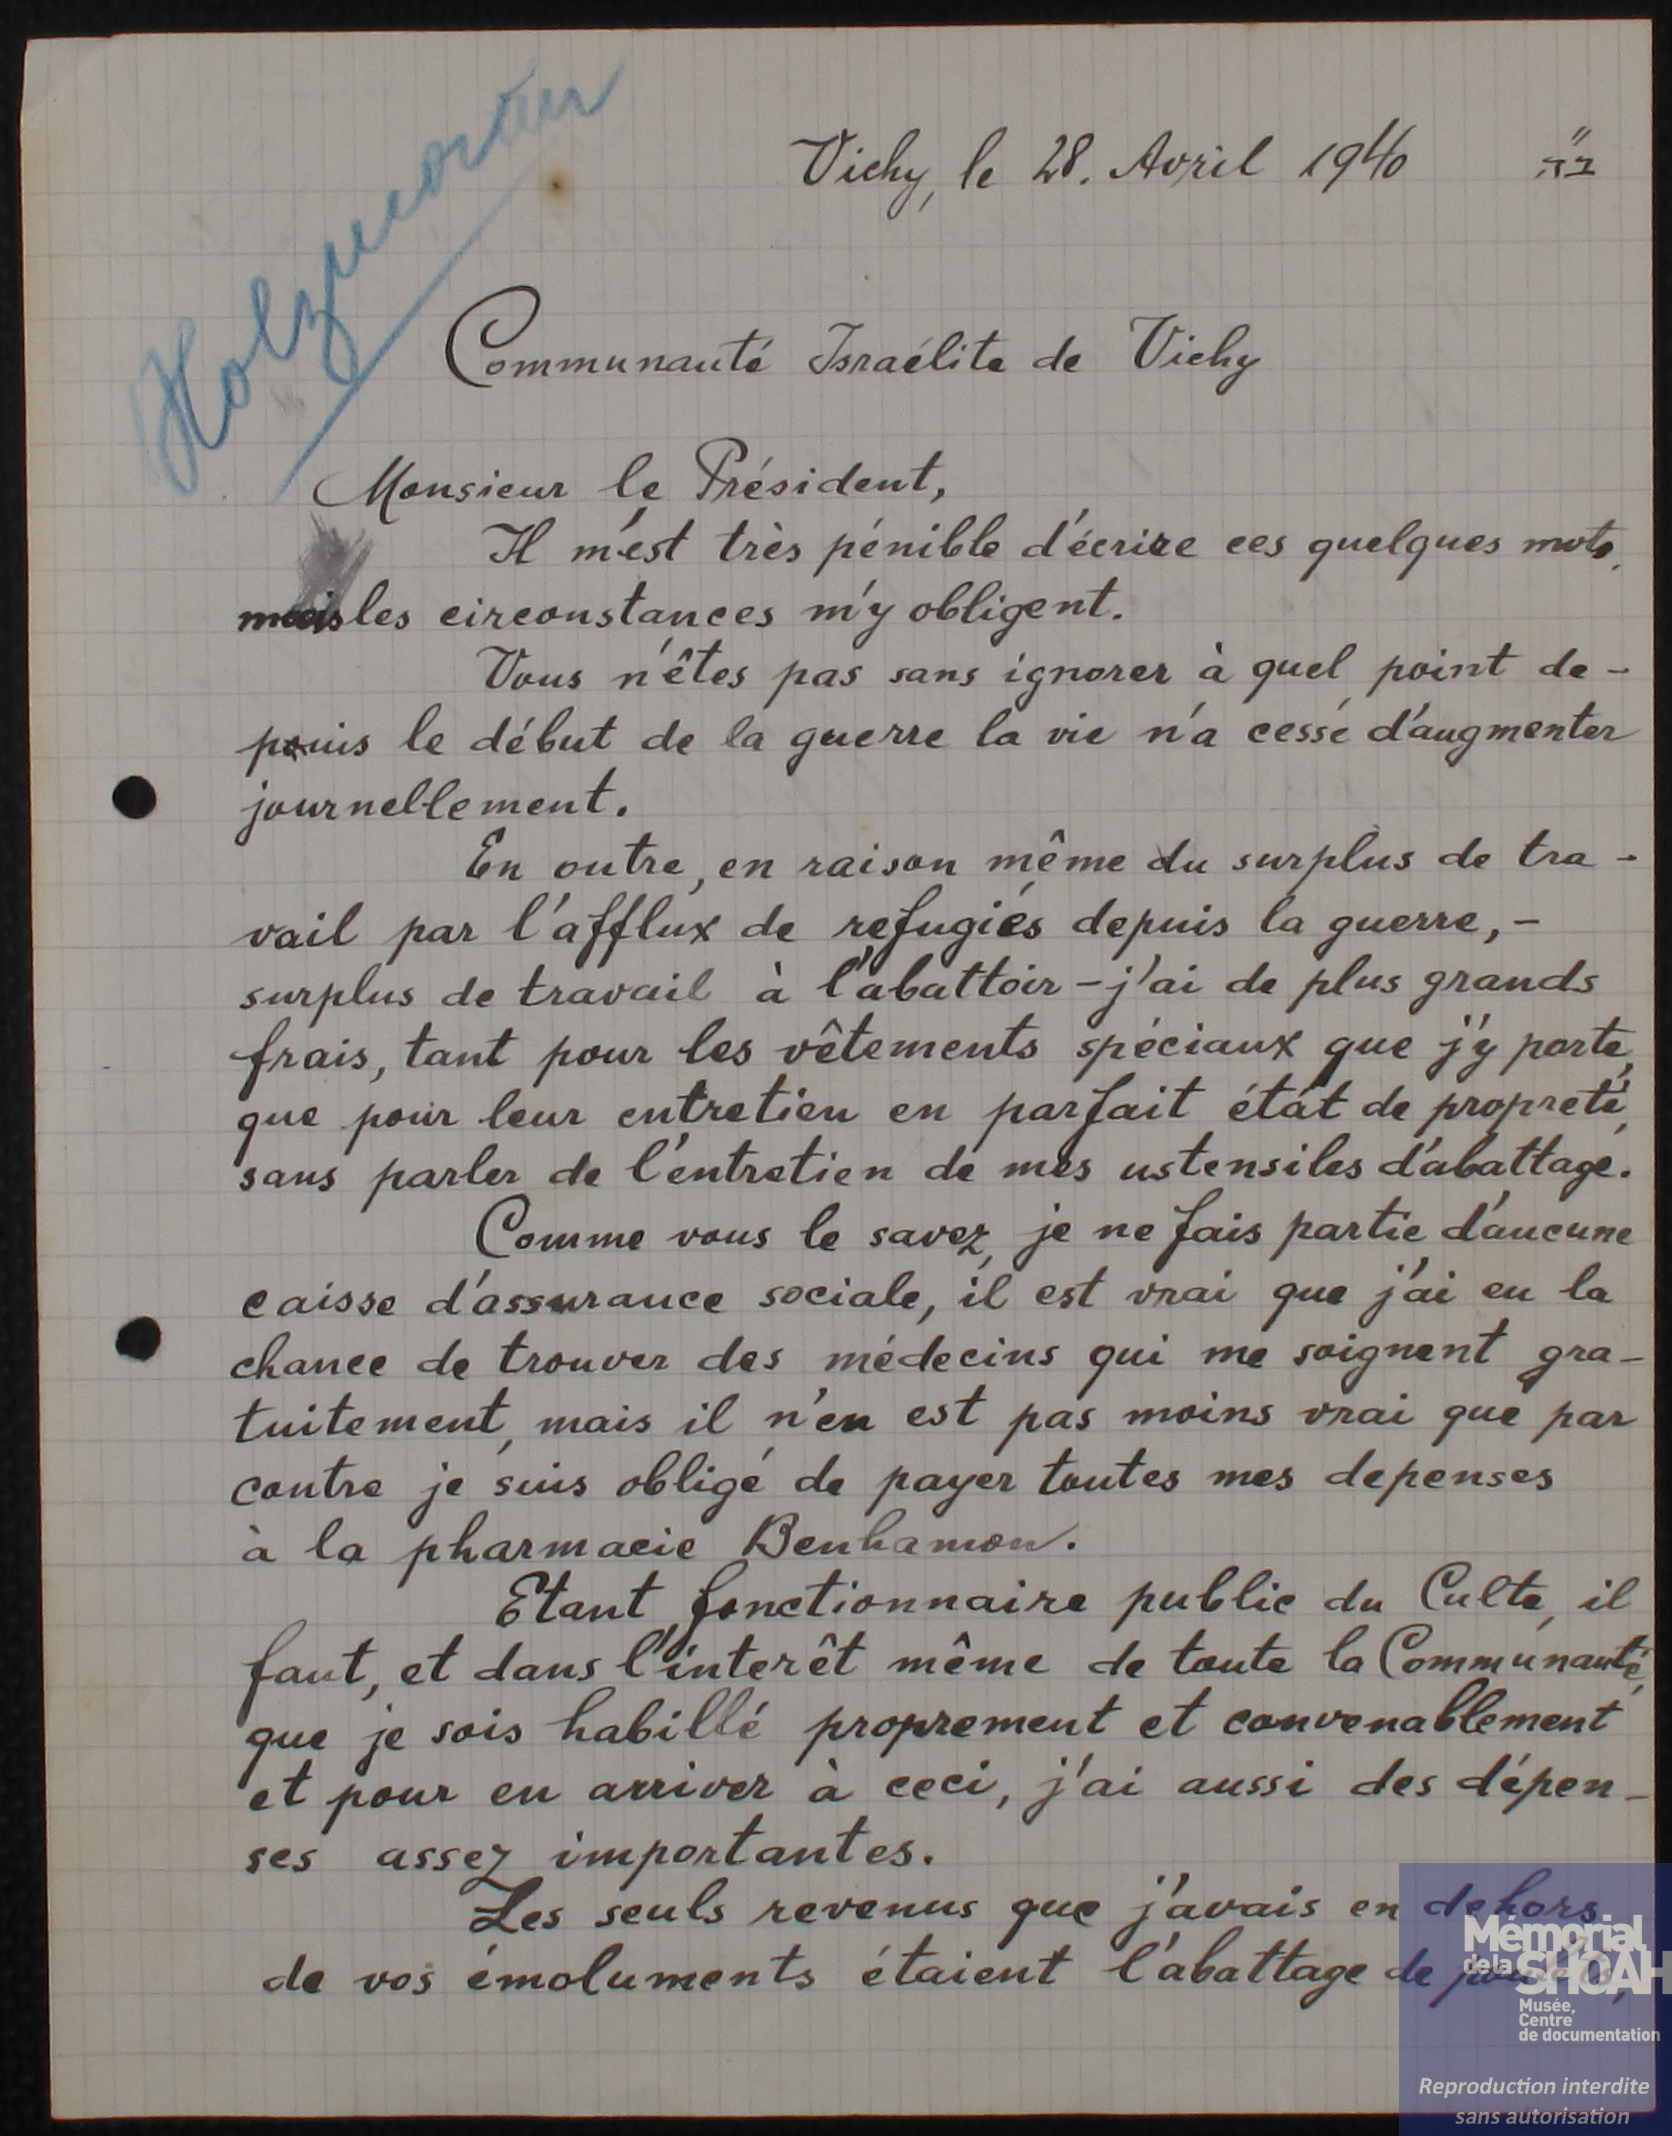 Holzmorter
Vichy, le 28. Avril 1940 ב״ה
Communauté Israélite de Vichy
Monsieur le Président,
Il m'est très pénible d'écrire ces quelques mots,
mais les circonstances m'y obligent.
Vous n'êtes pas sans ignorer à quel point de-
puis le début de la guerre la vie n'a cessé d'augmenter
journellement.
En outre, en raison même du surplus de tra-
vail par l'afflux de refugiés depuis la guerre, -
surplus de travail à l'abattoir - j'ai de plus grands
frais, tant pour les vêtements spéciaux que j'y porte,
que pour leur entretien en parfait état de propreté,
sans parler de l'entretien de mes ustensiles d'abattage.
Comme vous le savez, je ne fais partie d'aucune
caisse d'assurance sociale, il est vrai que j'ai eu la
chance de trouver des médecins qui me soignent gra-
tuitement, mais il n'en est pas moins vrai que par
contre je suis obligé de payer toutes mes depenses
à la pharmacie Benhamou.
Etant fonctionnaire public du Culte, il
faut, et dans l'interêt même de toute la Communauté,
que je sois habillé proprement et convenablement
et pour en arriver à ceci, j'ai aussi des dépen-
ses assez importantes.
Les seuls revenus que j'avais en dehors
de vos émoluments étaient l'abattage de
Mémorial
de la SHOAH
Musée,
Centre
de documentation
Reproduction interdite
sans autorisation